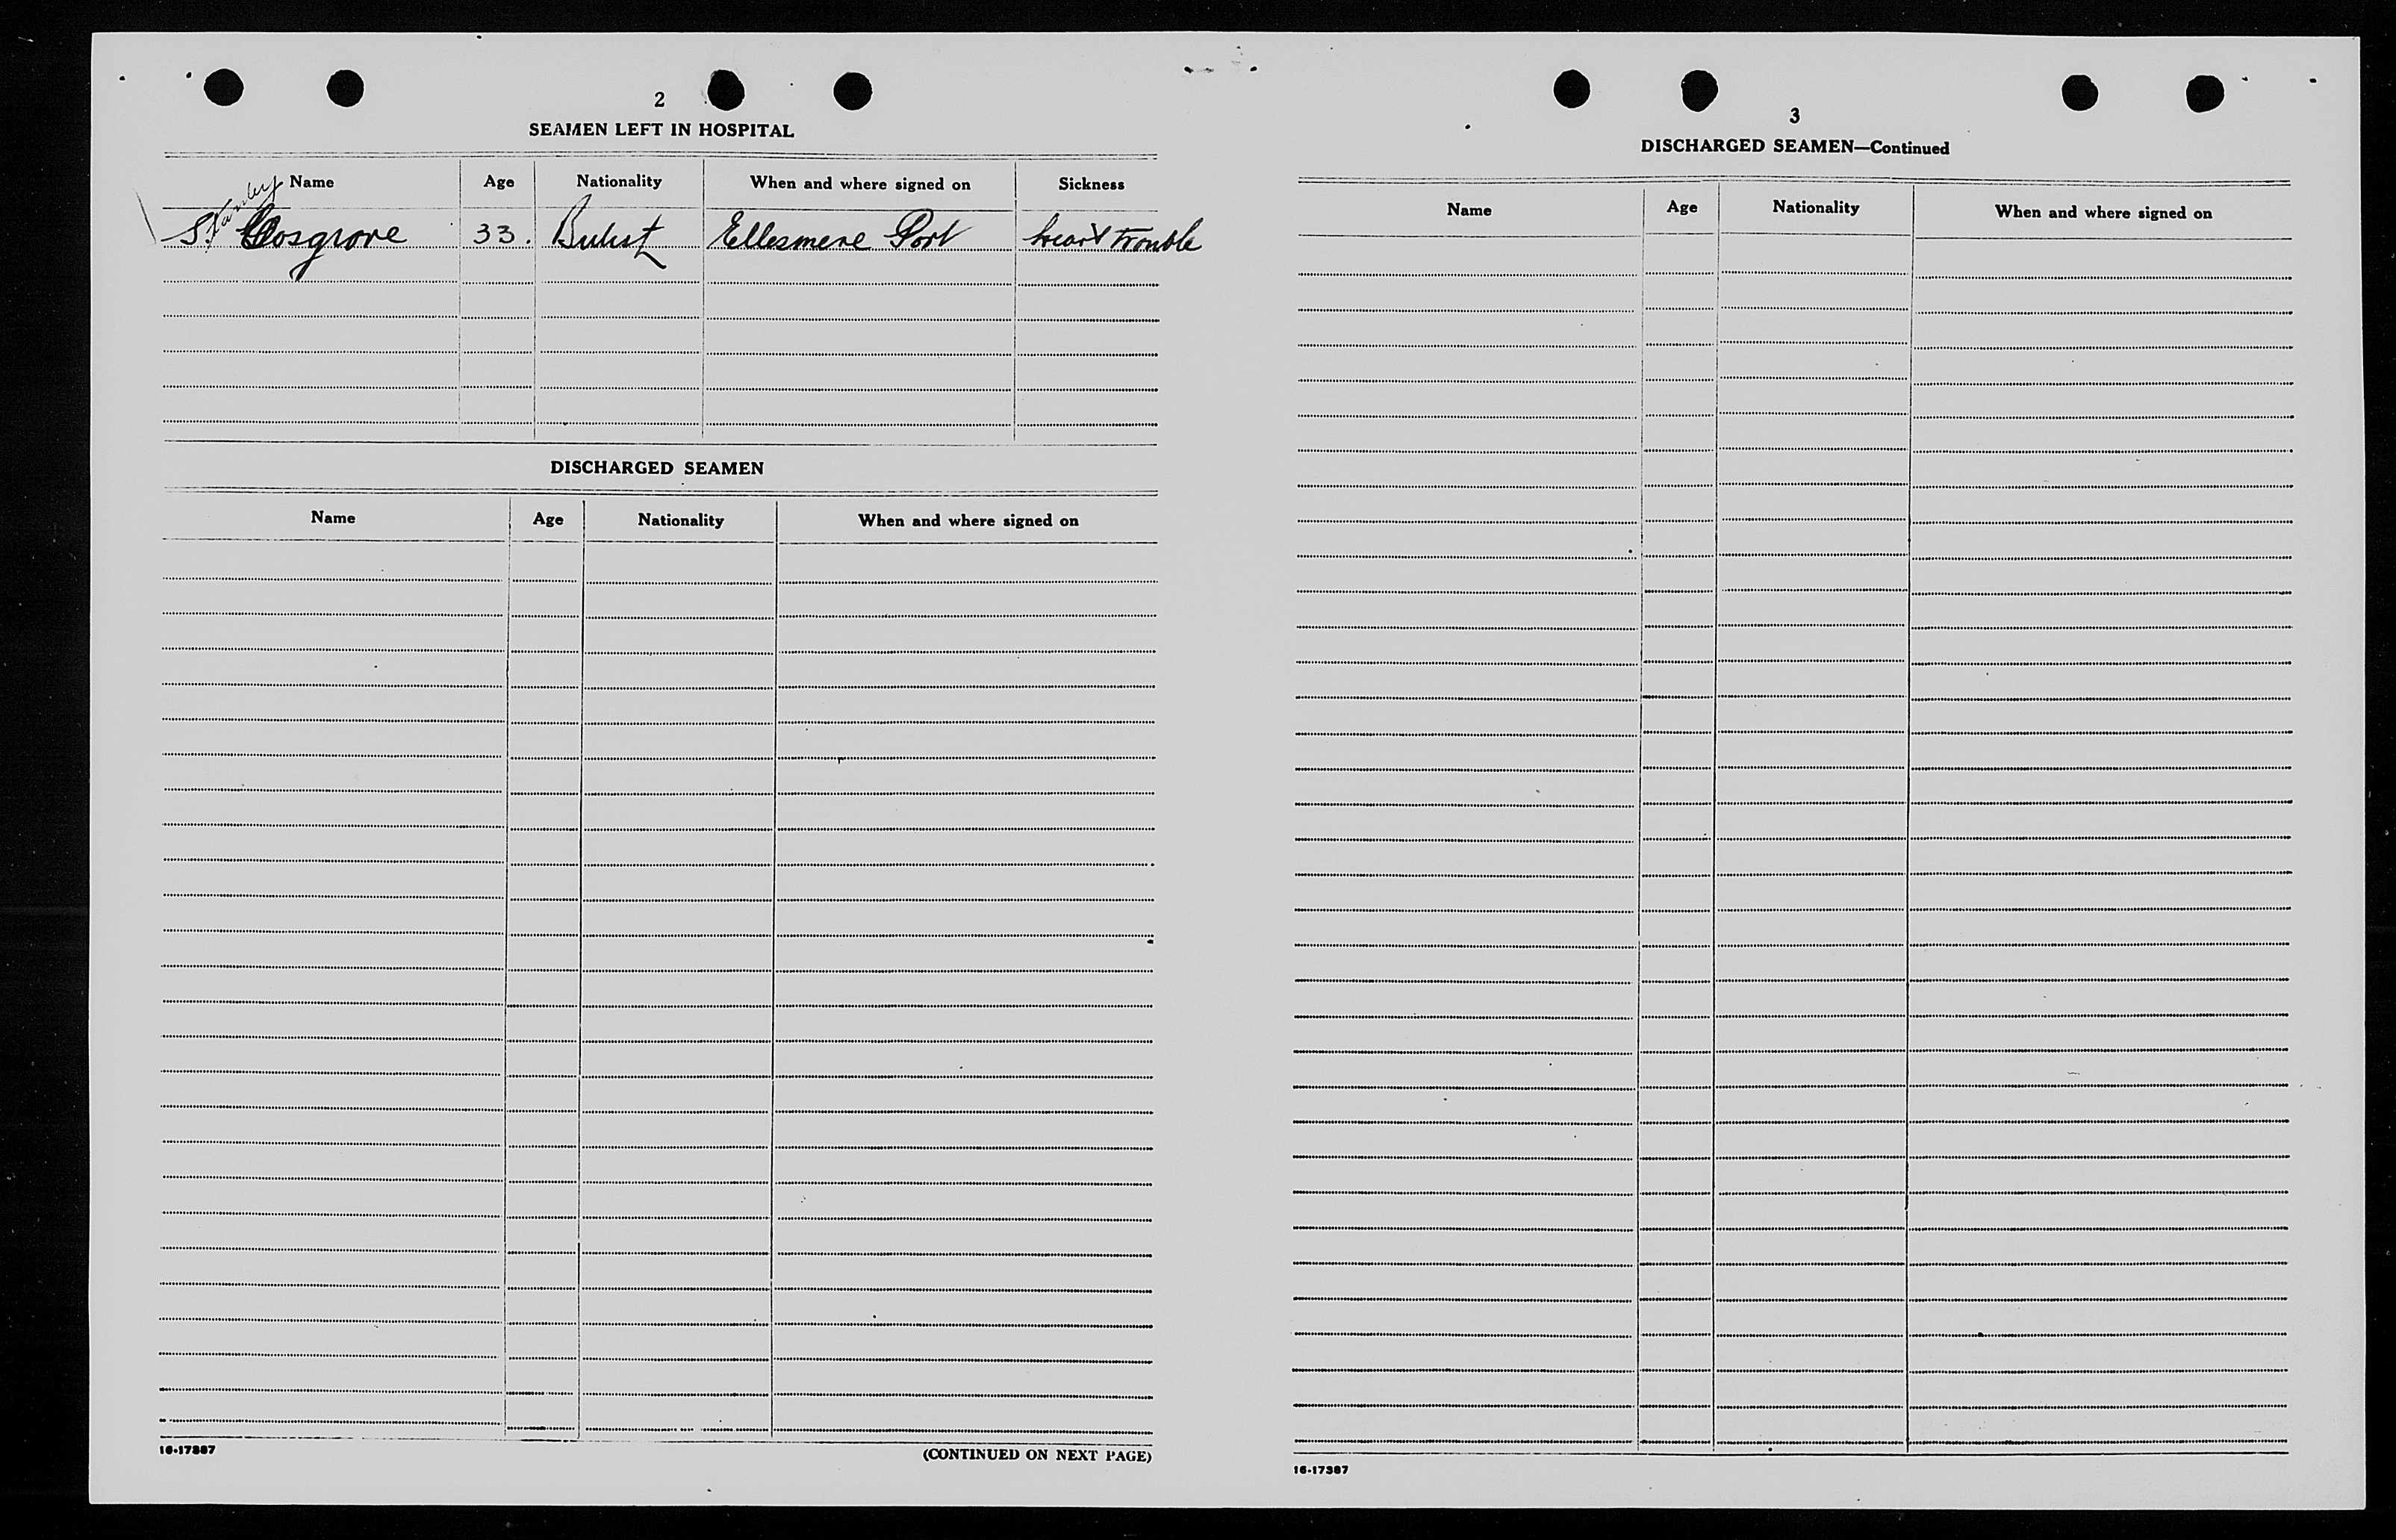 2
SEAMEN LEFT IN HOSPITAL
Name Age Nationality When and where signed on Sickness
Stanley
S. Cosgrove 33. British Ellesmere Port heart trouble
DISCHARGED SEAMEN
Name Age Nationality When and where signed on
16-17387
(CONTINUED ON NEXT PAGE)
3
DISCHARGED SEAMEN—Continued
Name Age Nationality When and where signed on
16-17387